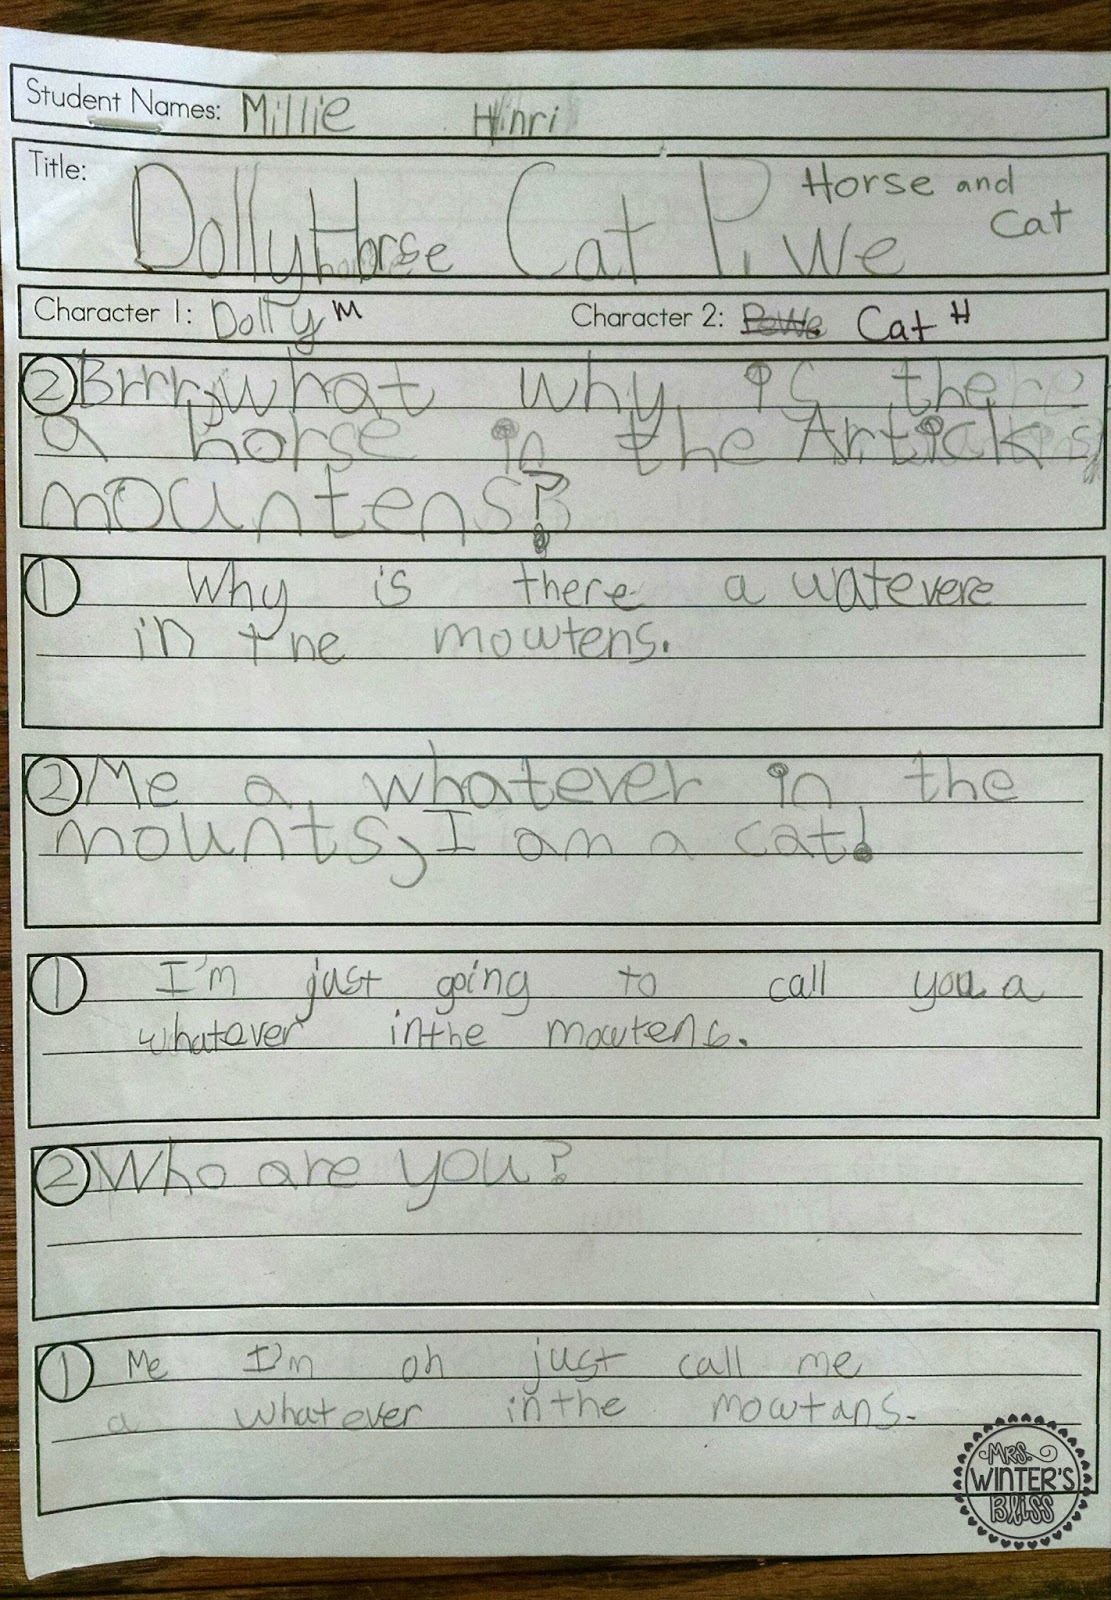 Student Names: Millie Hinri
Title: Dolly Horse Cat P. we Horse and
Cat
Character 1: Dolly M Character 2: PeWe Cat H
2 Brrr, what why is there
a horse in the Artick
mountens?
1 Why is there a watevere
in the mowtens.
2 Me a whatever in the
mounts, I am a cat!
1 I'm just going to call you a
whatever inthe mowtens.
2 Who are you?
1 Me I'm oh just call me
a whatever inthe mowtans.
MRS.
WINTER'S
BLISS